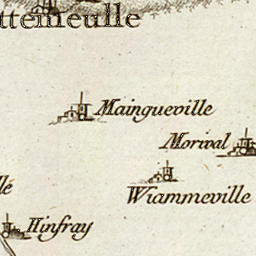 ttemeulle
Maingueville
Morival
lé
Wiammeville
Hinfray